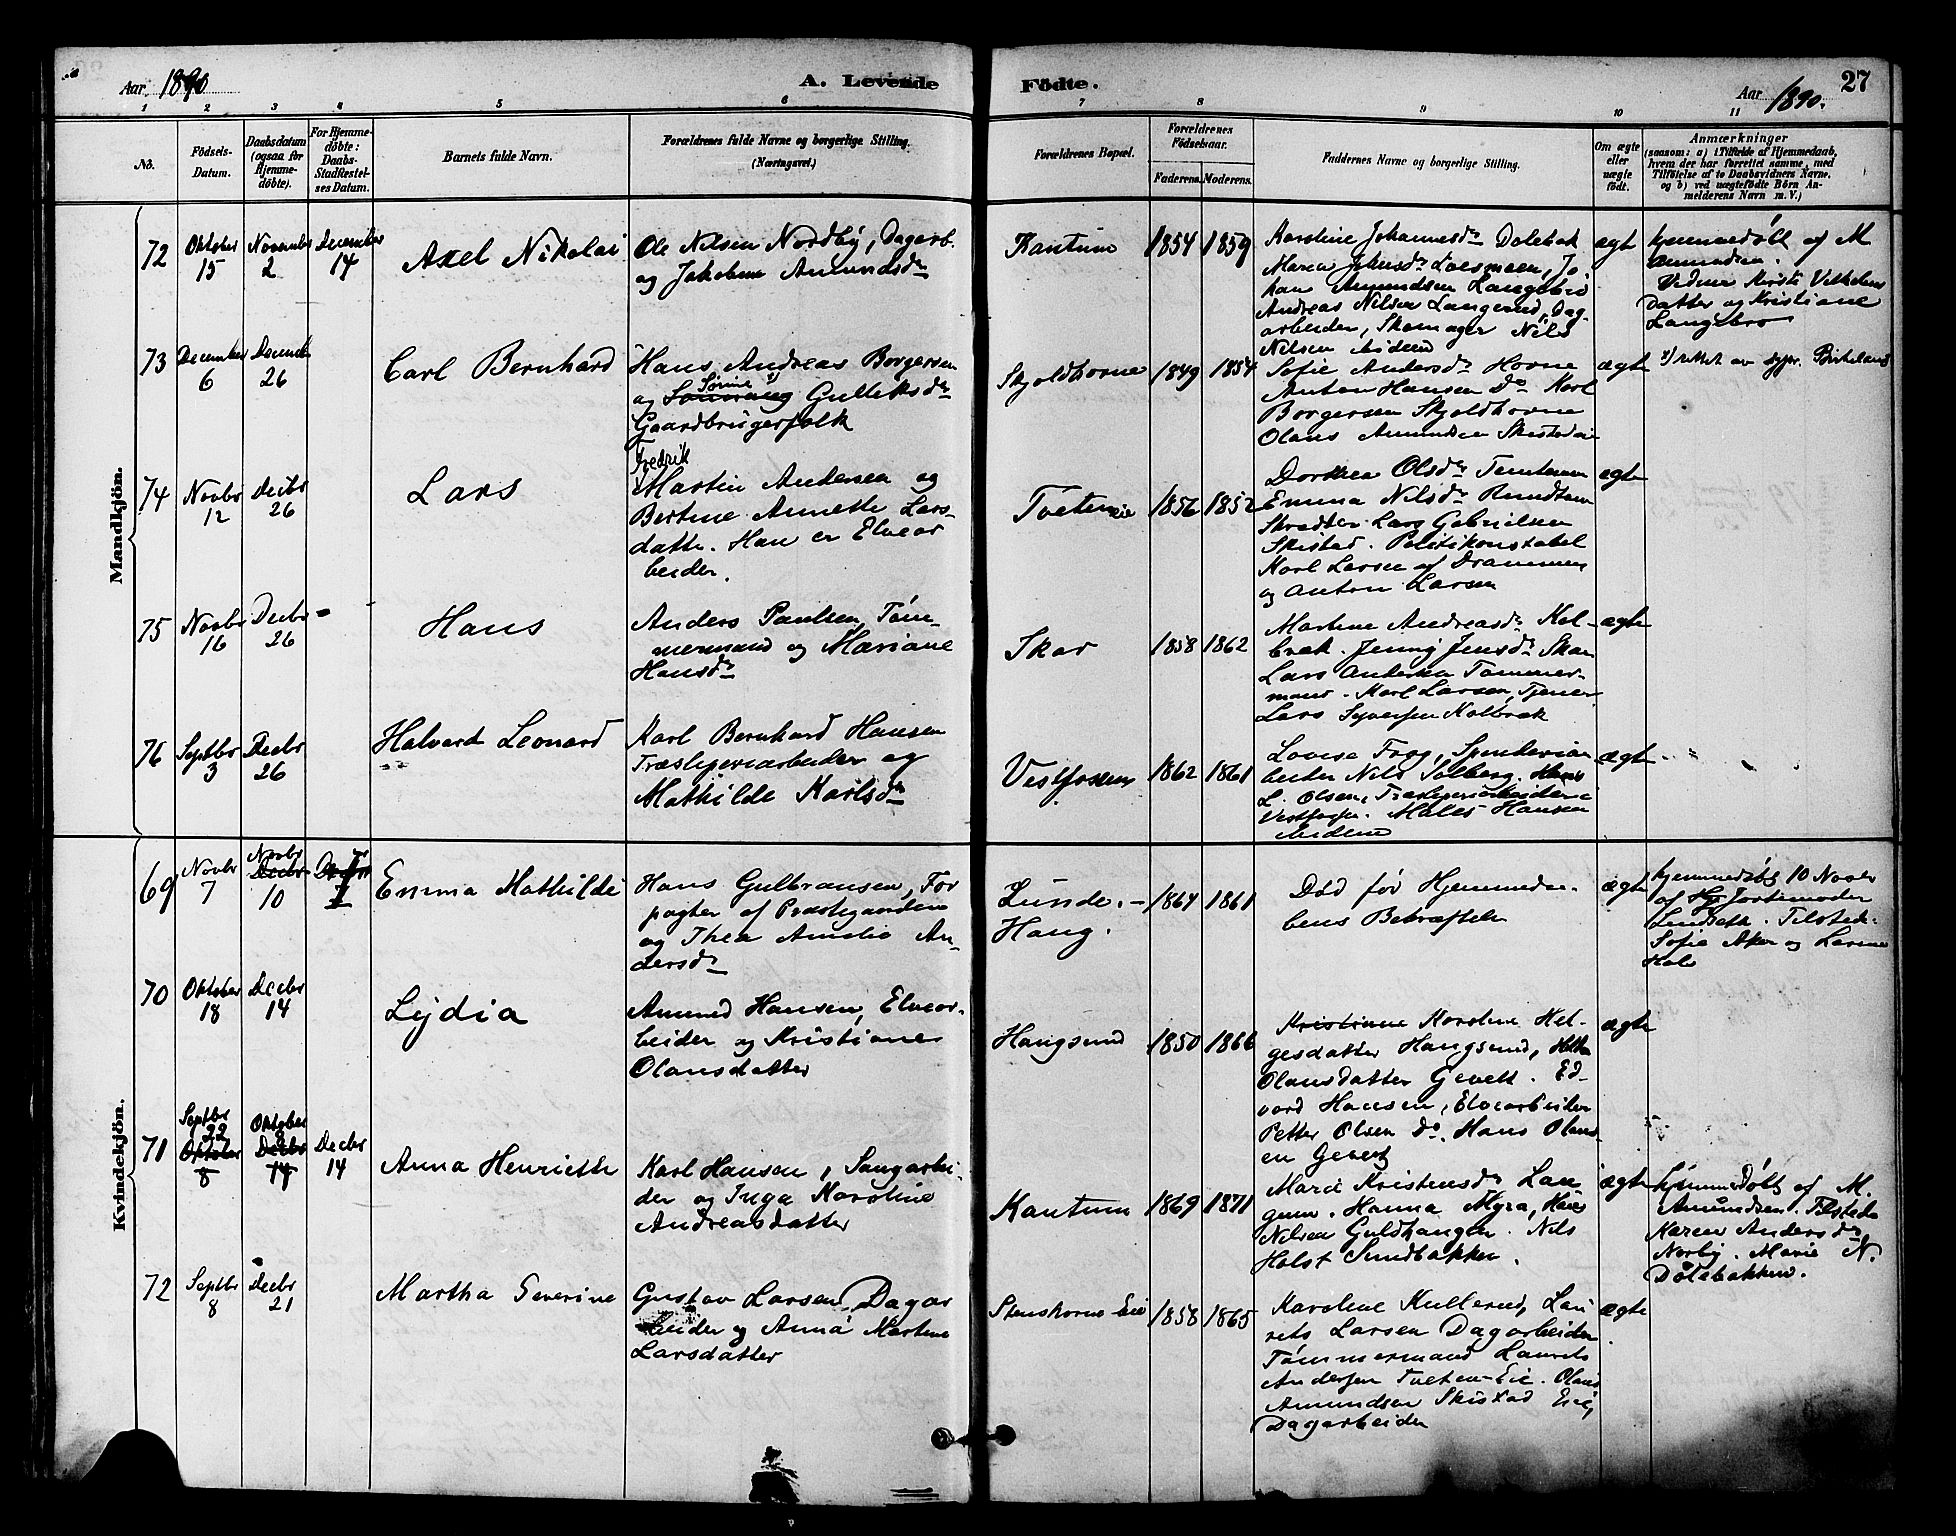 Aar 1890
A. Levende
Födte.
Aar 1890.
27
1 2 3 4 5 6 7 8 9 10 11
No.
Födsels-
Datum.
Daabsdatum
(ogsaa for
Hjemme-
döbte).
For Hjemme-
döbte:
Daabs-
Stadfæstel-
ses Datum.
Barnets fulde Navn.
Forældrenes fulde Navne og borgerlige Stilling.
(Næringsvei.)
Forældrenes Bopæl.
Forældrenes
Födselsaar.
Faderens. Moderens.
Faddernes Navne og borgerlige Stilling.
Om ægte
eller
uægte
födt.
Anmærkninger
(saasom: a) i Tilfælde af Hjemmedaab,
hvem der har forrettet samme, med
Tilföielse af to Daabsvidners Navne,
og b) ved uægtefödte Börn An-
melderens Navn m. V.)
Mandkjön.
72
Oktober
15
November
2
December
14
Axel Nikolai
Ole Nilsen Nordby, Dagarb.
og Jakobine Amundsdr
Kantum
1854 1859
Karoline Johannesdr Dolebak
Maren Johnsdr Loesmoen, Jo
han Amundsen Langebro
Andreas Nilsen Langerud, Dag-
arbeider, Skomager Nils
Nilsen
ægte
hjemmedöbt af M
Amundsen.
Vidner Kirsti Vilhelms
Datter og Kristiane
Langebro
73
December
6
Decemb
26
Carl Bernhard
Hans Andreas Borgersen
Sörine
og Gulliksdr
Gaardbrugerfolk
Skjoldhovne
1849 1854
Sofie Andersdr Hovne
Anton Hansen Do Karl
Borgersen Skjoldhovne
Olaus Amundsen Skistadeie
ægte
rettet av sgpr. Birkeland
74
Novbr
12
Decbr
26
Lars
Fredrik
Martin Andersen og
Bertine Annette Lars-
datter. Han er Elvear
beider.
Tveteneie
1856 1852
Dorthea Olsdr
Emma Nilsdr
Skrædder Lars Gabrielsen
Skistad. Politikonstabel
Karl Larsen af Drammen
og Anton Larsen
ægte
75
Novbr
16
Decbr
26
Hans
Anders Paulsen, Töm-
mermand og Mariane
Hansdr
Skar
1858 1862
Martine Andreasdr Kol-
bræk. Jenny Jensdr Skar
Lars Andersen Tømmer-
mand. Karl Larsen, Tjener
Lars Syversen Kolbræk
ægte
76
Septbr
3
Decbr
26
Halvard Leonard
Karl Bernhard Hansen
Træsliperiarbeider og
Mathilde Karlsdr
Vestfossen
1862 1861
Lovise Frog, Spinderiar
beider Nils Solberg. Hans
L. Olsen, Træsliperiarbeider i
Vestfossen. Hansen
ægte
Kvindekjön.
69
Novbr
7
Novbr
Decbr
10
Emma Mathilde
Hans Gulbransen, For
pagter af Præstegaarden
og Thea Amalia An-
dersdr
Lunde.-
Haug.
1864 1861
Död før Hjemmedaa-
bens Bekræftelse
ægte
hjemmedöbt 10 Novbr
af Jordemoder
Tilsted.
Sofie Aker og
70
Oktober
18
Decbr
14
Lydia
Amund Hansen, Elvear-
beider og Kristiane
Olausdatter
Haugsund
1850 1866
Kristiane Karoline Hel-
gesdatter Haugsund,
Olausdatter Gevelt. Ed-
vard Hansen, Elvearbeider
Petter Olsen do. Hans Olaus-
en Gevelt
ægte
71
Septbr
22
Oktober
8
Oktober
Decbr
14
Decbr
14
Anna Henriette
Karl Hansen, Saugarbei-
der og Inga Karoline
Andreasdatter
Kantum
1869 1871
Marie Kristensdr Lan
gerud. Hanna Myra, Hans
Nilsen Guldhaugen. Nils
Holst Sundbakken.
ægte
hjemmedöbt af M.
Amundsen. Tilstede
Karen Andersdr
Norby. Marie N.
Dölebakken.
72
Septbr
8
Decbr
21
Martha Severine
Gustav Larsen, Dagar
beider og Anna Martine
Larsdatter
Stenshorne Eie
1858 1865
Karoline Kullerud, Lau
rets Larsen Dagarbeider
Tömmermand Laurets
Andersen Tveten-Eie. Olaus
Amundsen Skistad Eie,
Dagarbeider
ægte